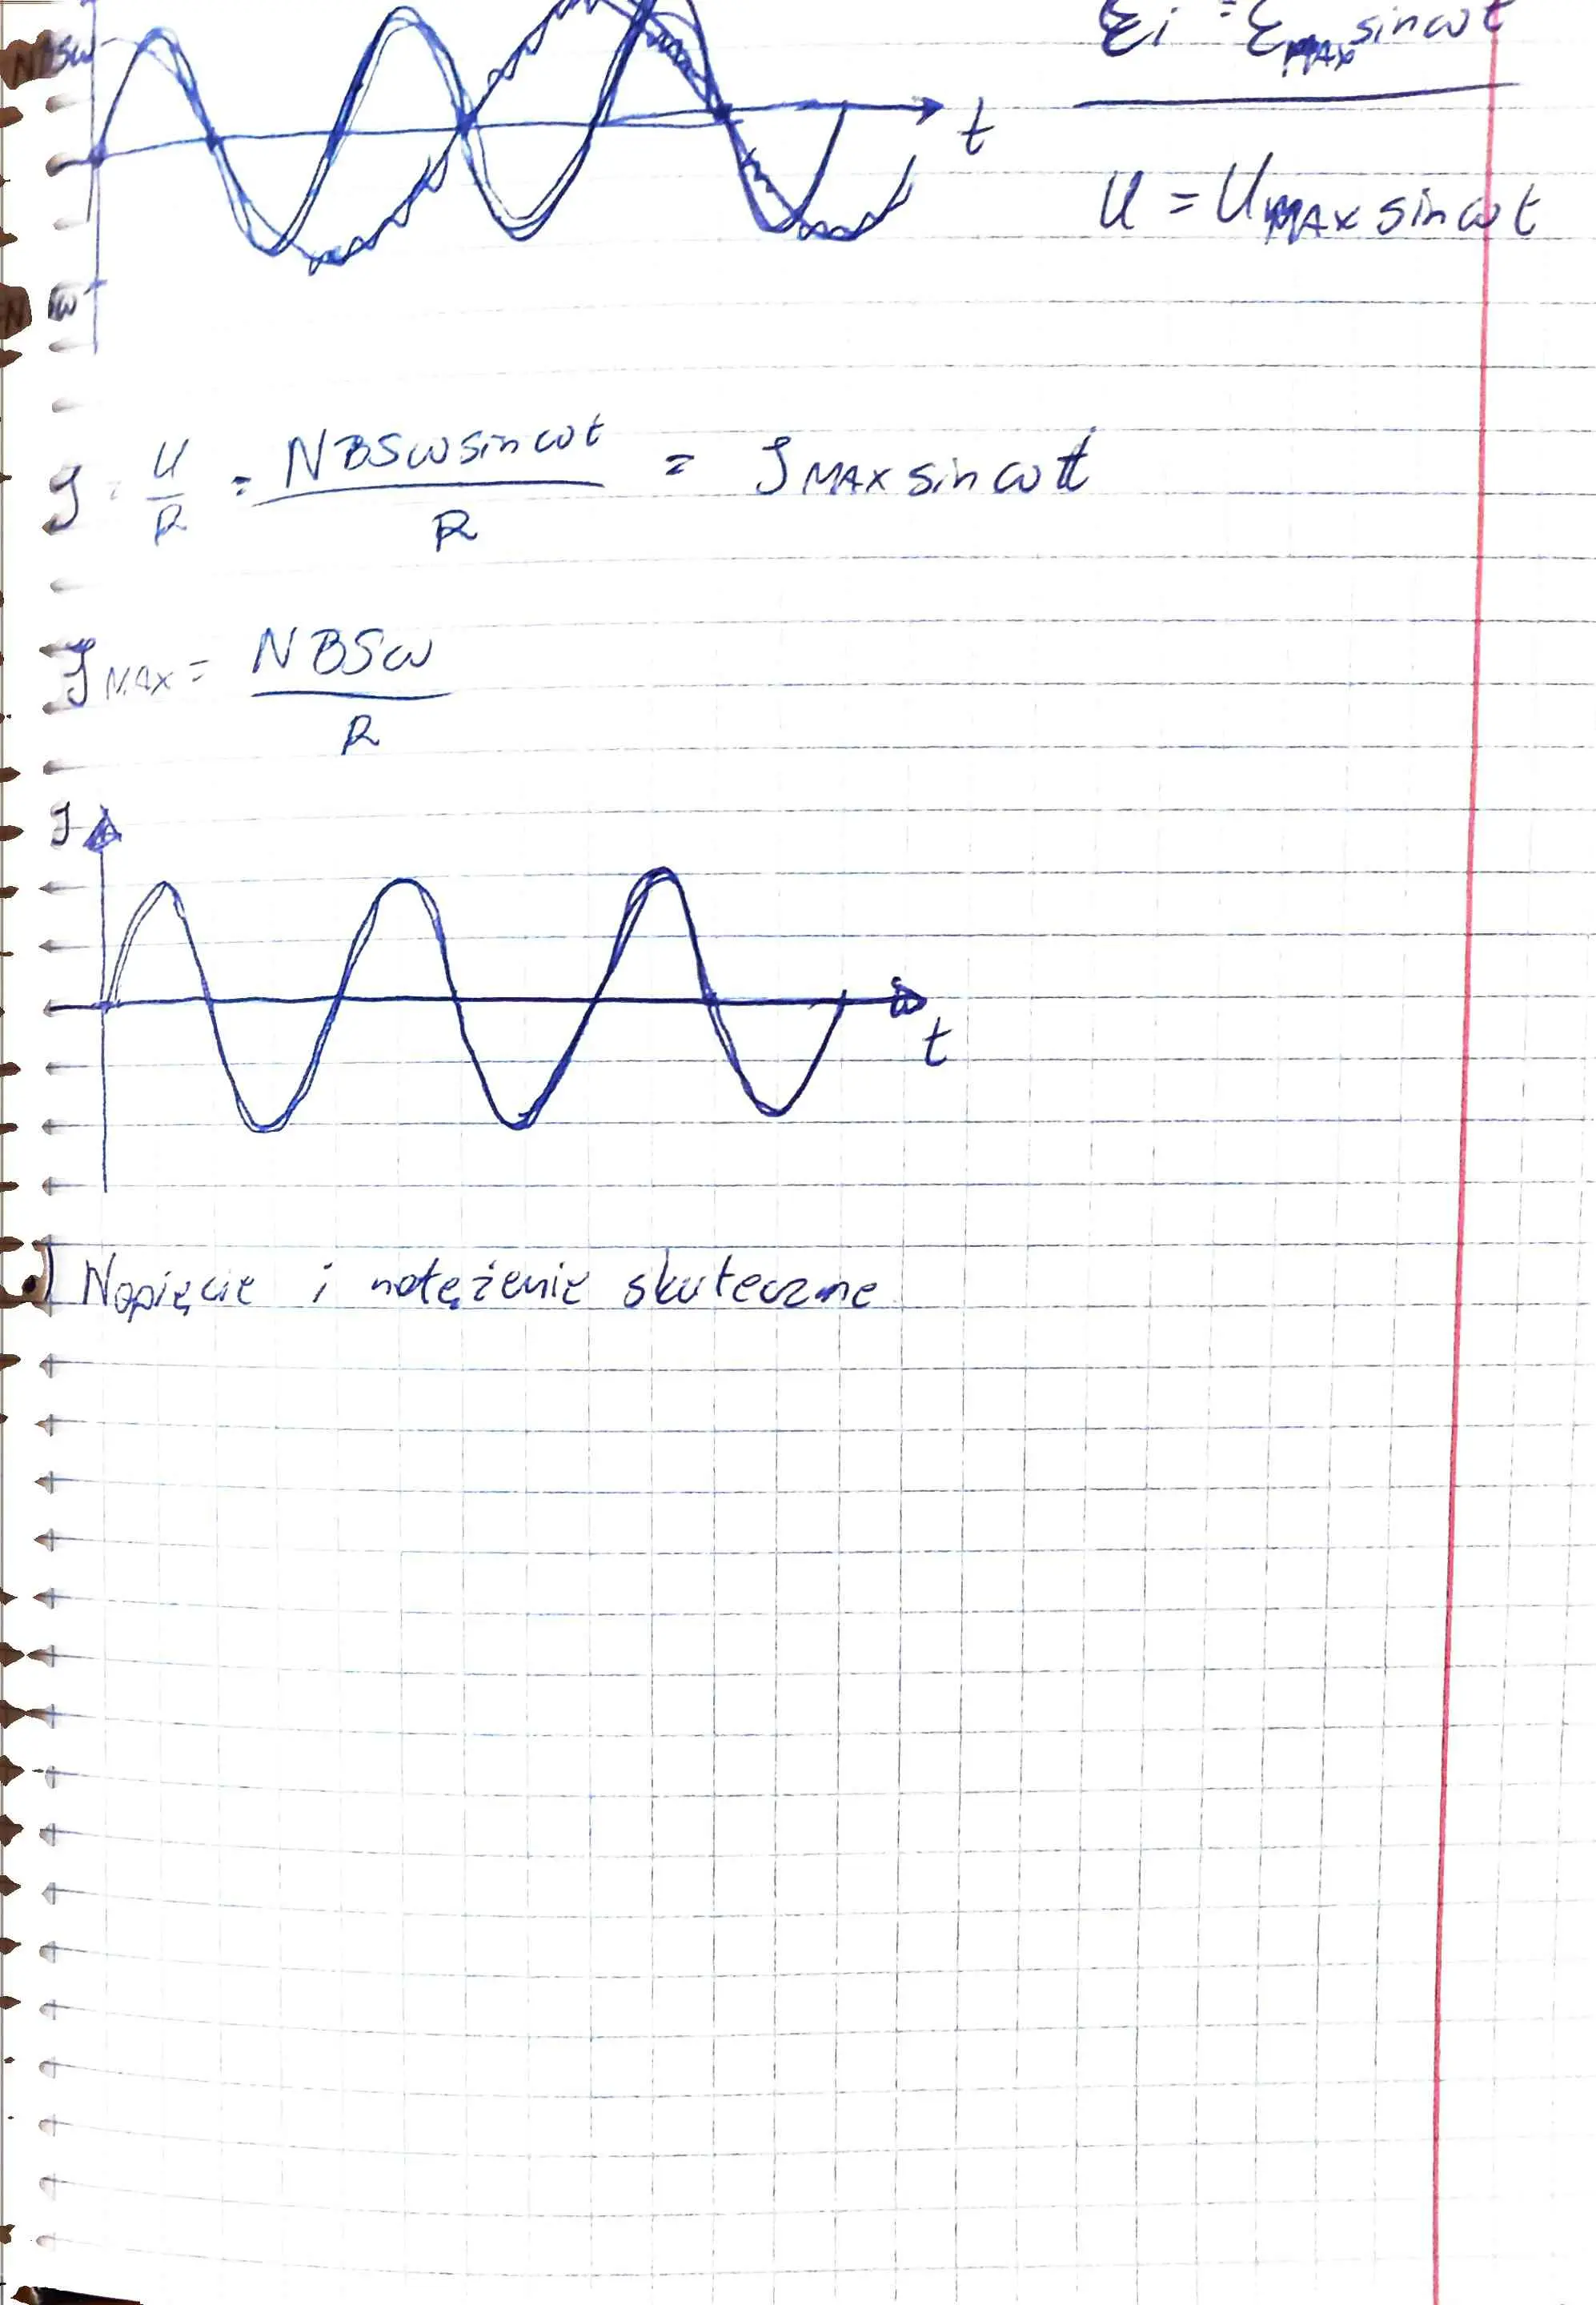 NBSω
εi = εMAX sinωt
t
U = UMAX sinωt
J = U/R = NBSω sinωt / R = JMAX sinωt
JMAX = NBSω / R
J
t
Napięcie i natężenie skuteczne